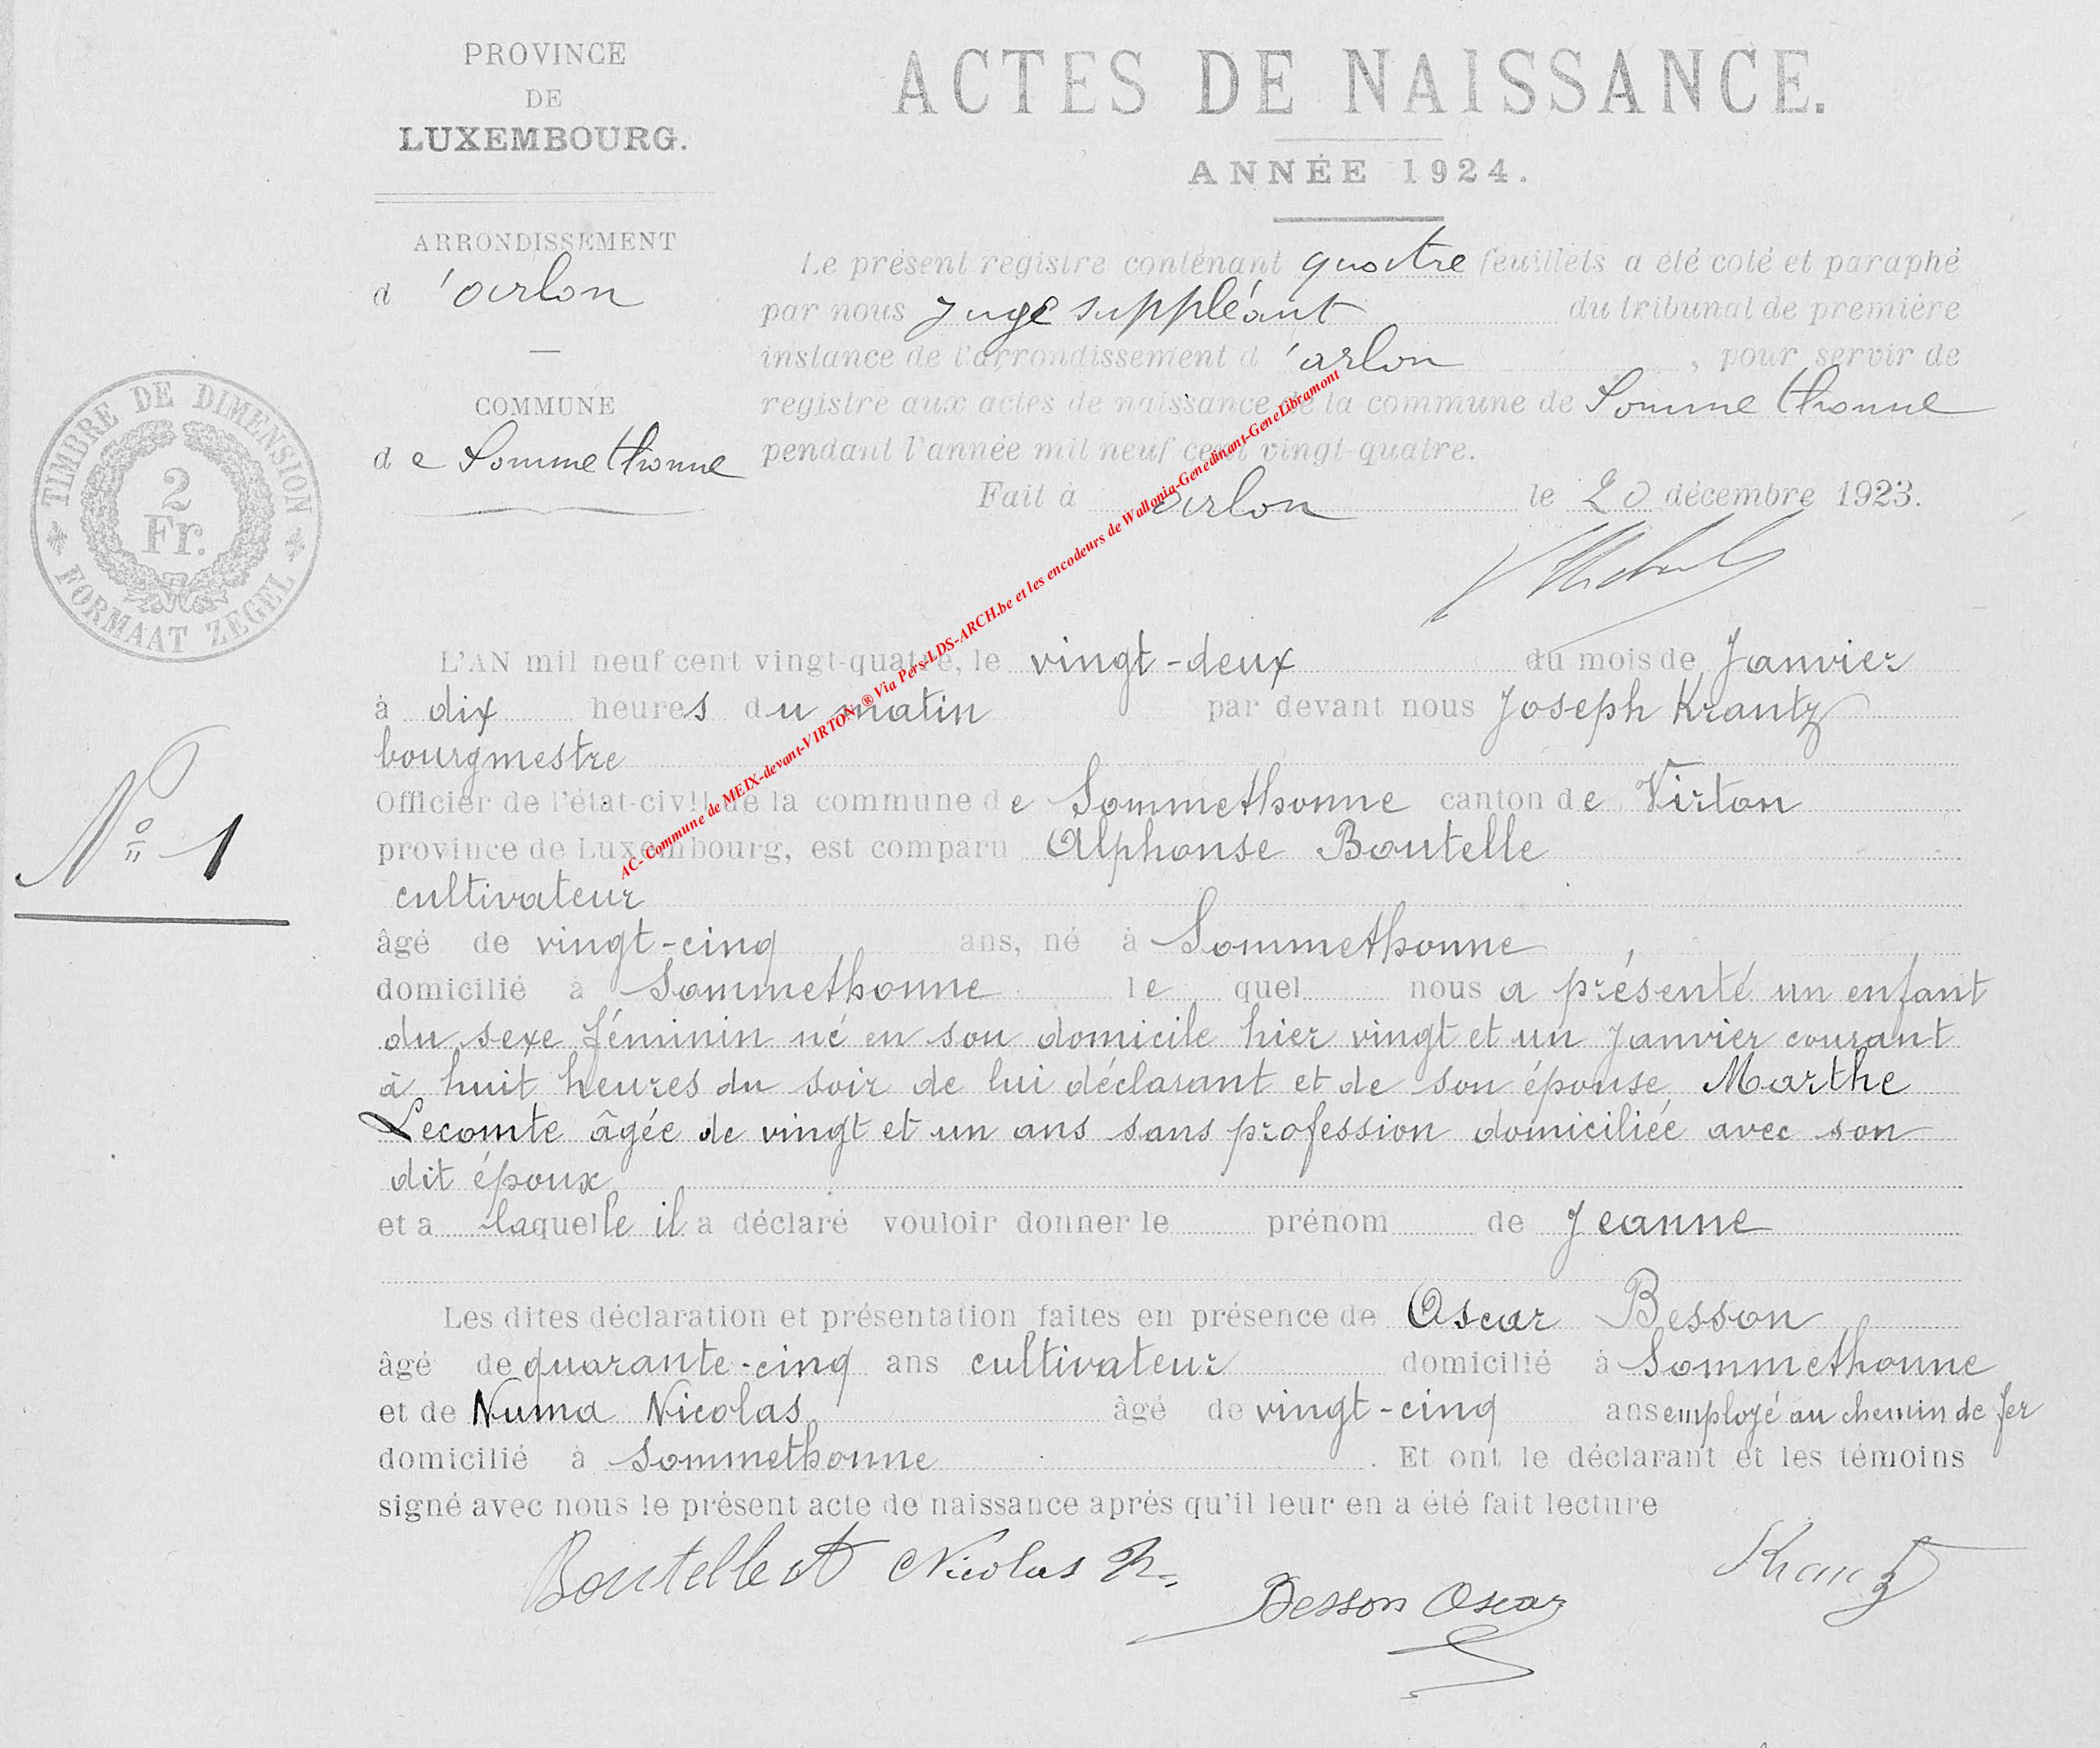 PROVINCE
DE
LUXEMBOURG.
ARRONDISSEMENT
d 'arlon
COMMUNE
de Sommethonne
TIMBRE DE DIMENSION
2
Fr.
FORMAAT ZEGEL
ACTES DE NAISSANCE.
ANNÉE 1924.
Le présent registre contenant quatre feuillets a été coté et paraphé
par nous Juge suppléant du tribunal de première
instance de l'arrondissement d 'arlon, pour servir de
registre aux actes de naissance de la commune de Somme thonne
pendant l'année mil neuf cent vingt-quatre.
Fait à arlon le 20 décembre 1923.
AC- Commune de MEIX-devant-VIRTON ® Via Pers-LDS-ARCH.be et les encodeurs de Wallonia-Genedinant-GeneLibramont
N° 1
L'AN mil neuf cent vingt-quatre, le vingt-deux du mois de Janvier
à dix heures du matin par devant nous Joseph Krantz
bourgmestre
Officier de l'état-civil de la commune de Sommethonne canton de Virton
province de Luxembourg, est comparu Alphonse Boutelle
cultivateur
âgé de vingt-cinq ans, né à Sommethonne
domicilié à Sommethonne le quel nous a présenté un enfant
du sexe féminin né en son domicile hier vingt et un Janvier courant
à huit heures du soir de lui déclarant et de son épouse, Marthe
Lecomte âgée de vingt et un ans sans profession domiciliée avec son
dit époux
et a laquelle il a déclaré vouloir donner le prénom de Jeanne
Les dites déclaration et présentation faites en présence de Oscar Besson
âgé de quarante-cinq ans cultivateur domicilié à Sommethonne
et de Numa Nicolas âgé de vingt-cinq ans employé au chemin de fer
domicilié à Sommethonne. Et ont le déclarant et les témoins
signé avec nous le présent acte de naissance après qu'il leur en a été fait lecture
Boutelle A Nicolas N.
Besson Oscar
Krantz